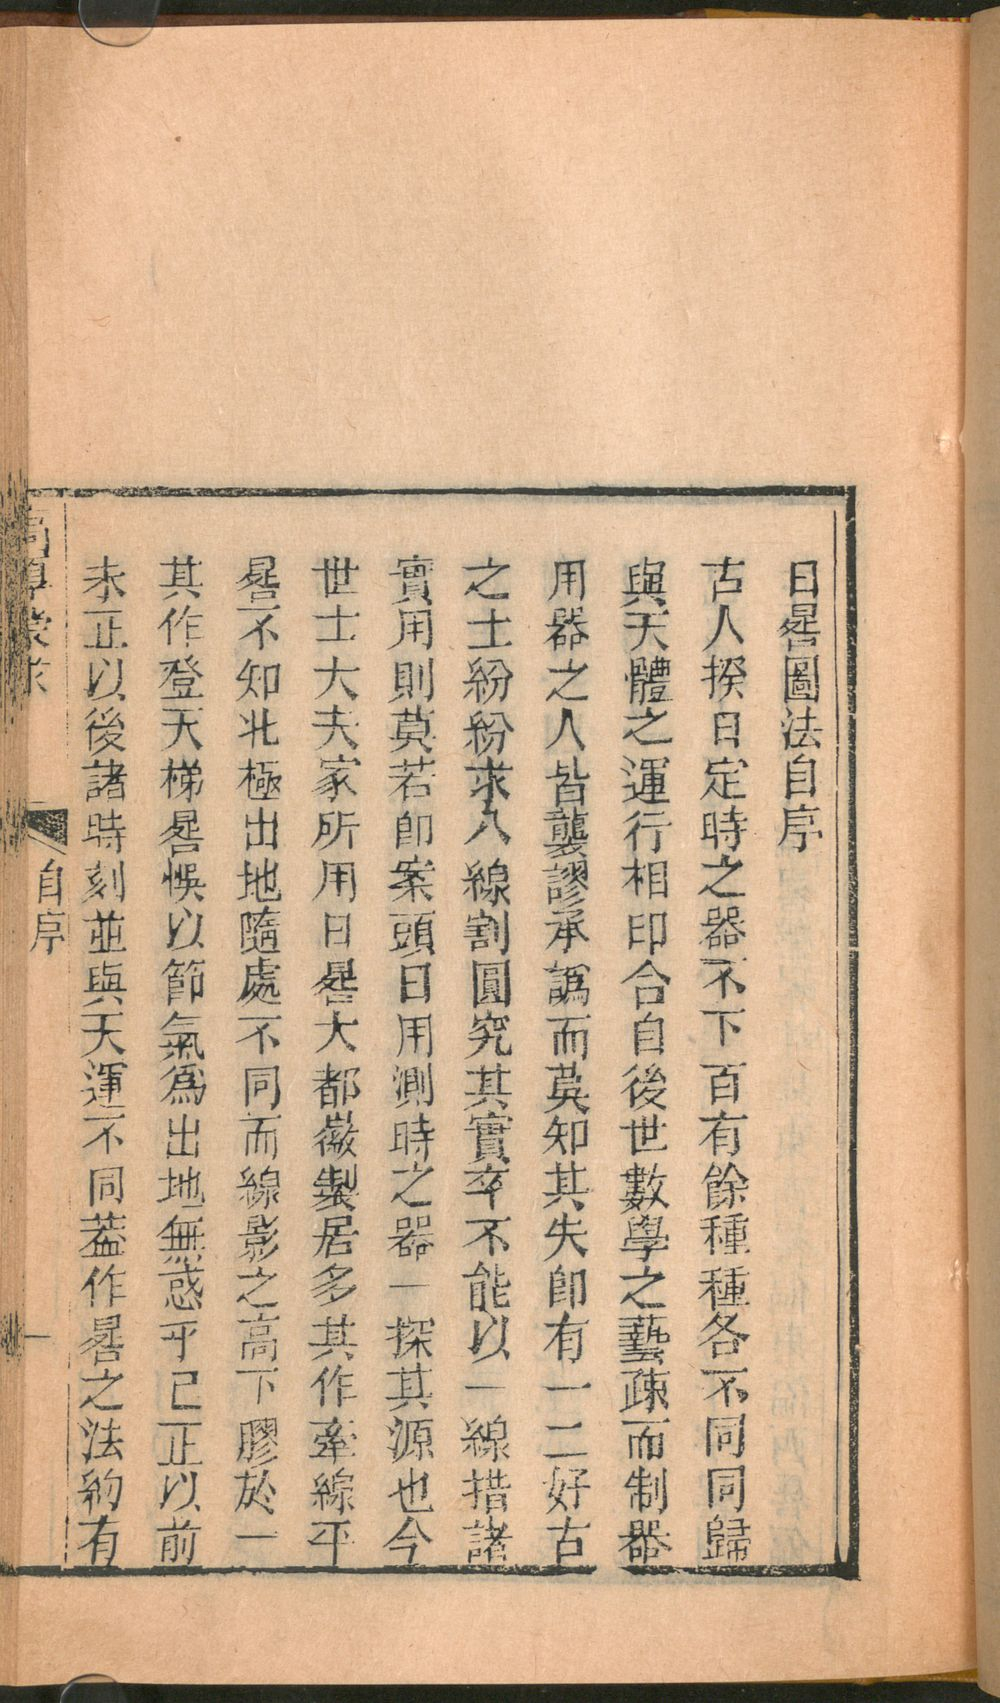 日晷圖法自序
古人揆日定時之器不下百有餘種種各不同同歸
與天體之運行相印合自後世數學之藝疎而制器
用器之人皆襲謬承譌而莫知其失即有一二好古
之士紛紛求八線割圓究其實卒不能以一線措諸
實用則莫若即案頭日用測時之器一探其源也今
世士大夫家所用日晷大都徽製居多其作牽線平
晷不知北極出地隨處不同而線影之高下膠於一
其作登天梯晷悞以節氣爲出地無惑乎已正以前
未正以後諸時刻並與天運不同葢作晷之法約有
自序
一